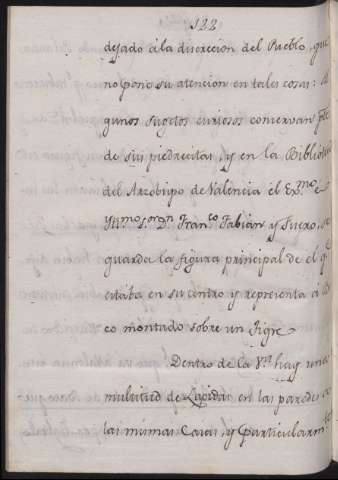 122
dejado á la discrecion del Pueblo, que
no pone su atencion en tales cosas: Al
gunos sugetos curiosos conservan pte
de sus piedrecitas, y en la Biblioteca
del Arzobispo de Valencia el Exmo. e
Yllmo. Sor. Dn. Franco. Fabian y Fuero, se
guarda la figura principal de el qe
estaba en su centro y representa á Ba
co montado sobre un Tigre
Dentro de la Va. hay una
multitud de Lapidas en las paredes de
las mismas Casas, y particularmte